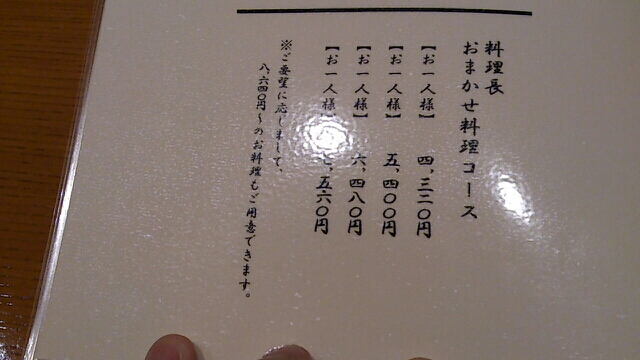 料理長
おまかせ料理コース
【お一人様】 四,三二〇円
【お一人様】 五,四〇〇円
【お一人様】 六,四八〇円
【お一人様】 七,五六〇円
※ご要望に応じまして、
八,六四〇円～のお料理もご用意できます。